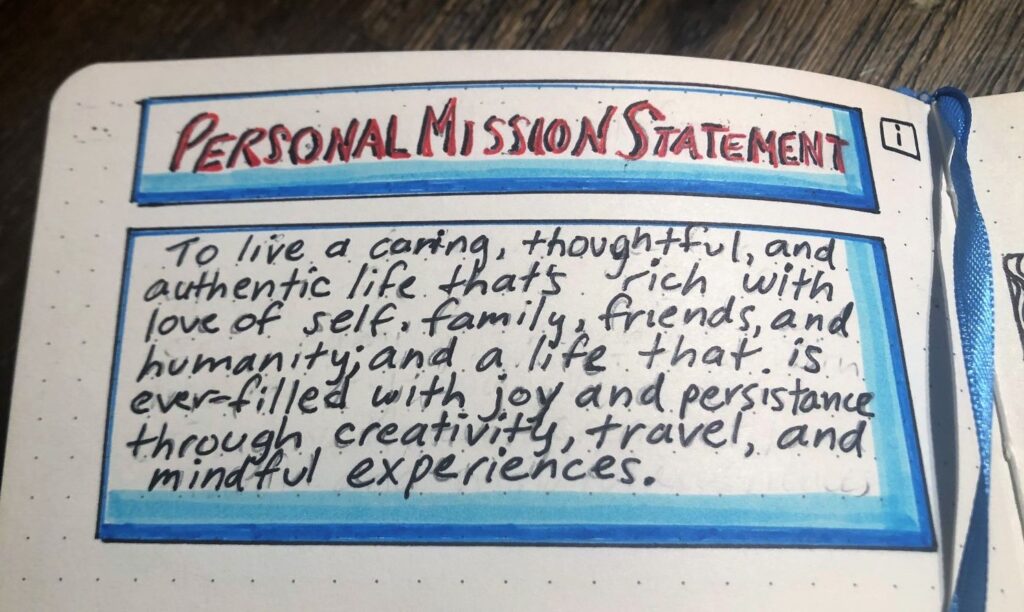 PERSONAL MISSION STATEMENT
i
To live a caring, thoughtful, and
authentic life that's rich with
love of self, family, friends, and
humanity; and a life that is
ever-filled with joy and persistance
through creativity, travel, and
mindful experiences.